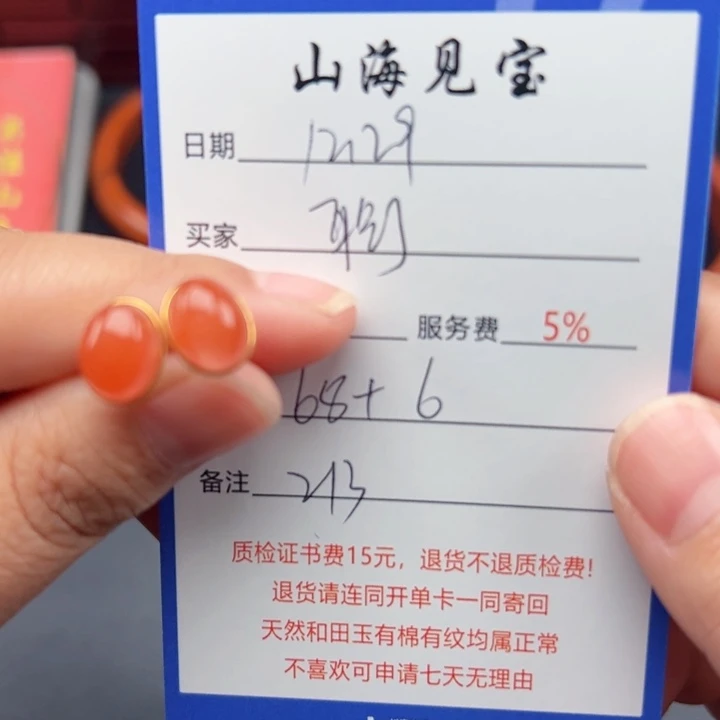 山海见宝
日期 12.29
买家
服务费 5%
68+6
备注 213
质检证书费15元，退货不退质检费！
退货请连同开单卡一同寄回
天然和田玉有棉有纹均属正常
不喜欢可申请七天无理由